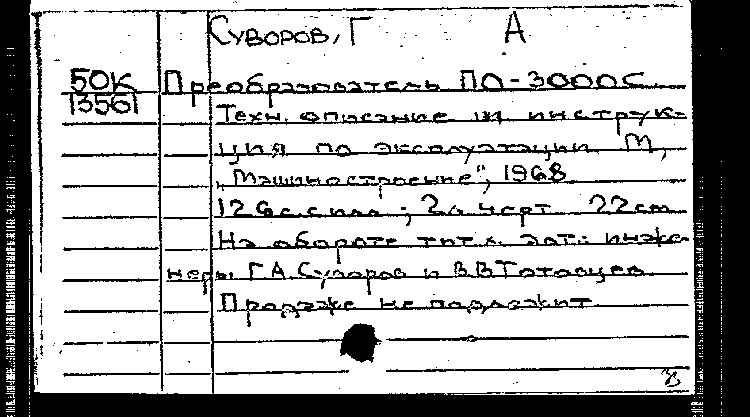 Суворов, Г А
50К Преобразователь ПО-3000С
13561 Техн. описание и инструк-
ция по эксплуатации. М.,
„Машиностроение", 1968
126с. с илл.; 2л. черт. 22cm
На обороте тит. л. авт.: инже-
неры Г.А. Суворов и В.В.
Продаже не подлежит